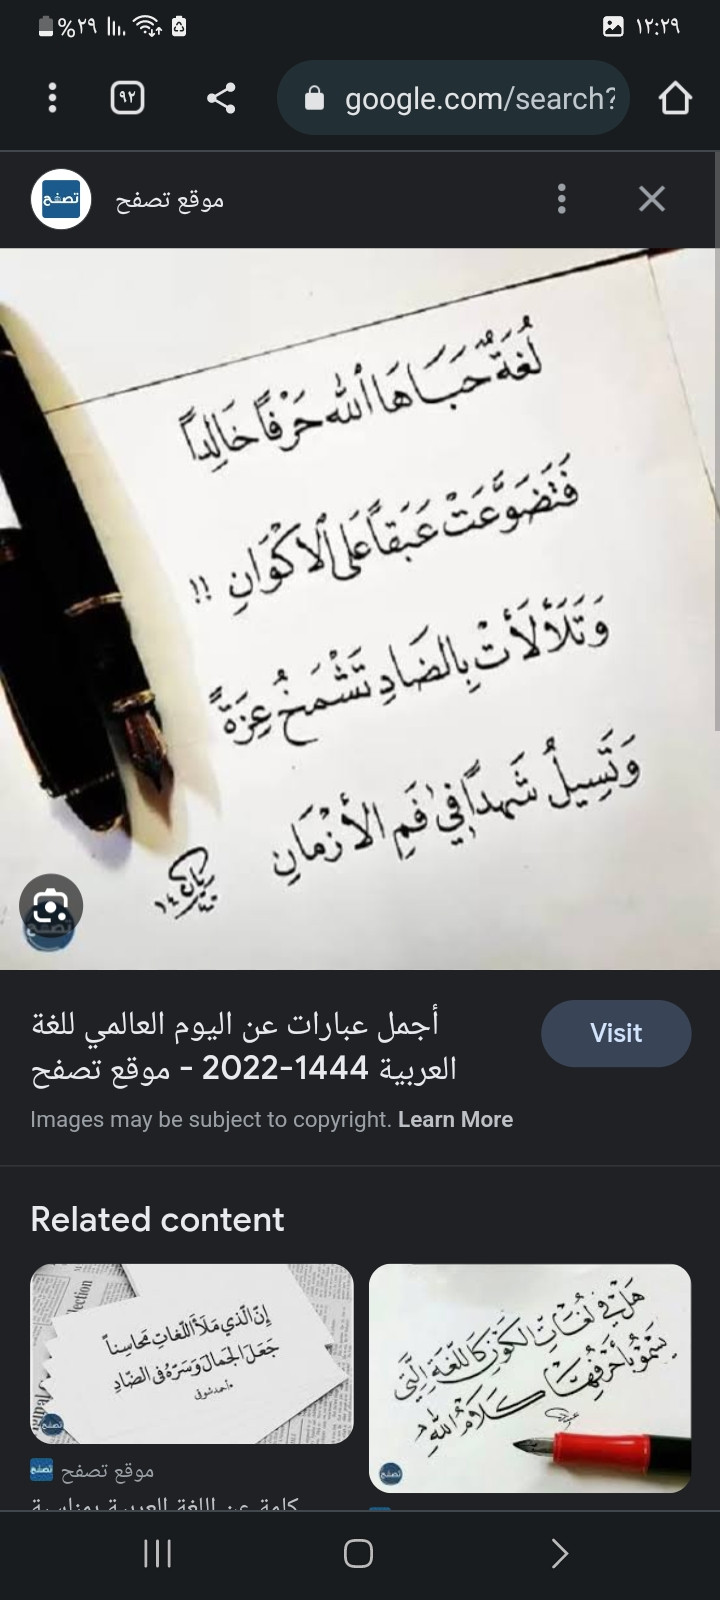 ٪٢٩
١٢:٢٩
٩٢
google.com/search?
تصفح
موقع تصفح
لُغَةٌ حَبَاهَا اللهُ حَرْفًا خَالِدًا
فَتَضَوَّعَتْ عَبَقًا عَلَى الْأَكْوَانِ !!
وَتَلَأْلَأَتْ بِالضَادِ تَشْمَخُ عِزَةً
وَتَسِيلُ شَهدًا في فَمِ الأَزْمَانِ
تصفح
أجمل عبارات عن اليوم العالمي للغة
العربية 1444-2022 - موقع تصفح
Visit
Images may be subject to copyright. Learn More
Related content
إنّ الّذي مَلَأَ اللّغاتِ مَحاسِناً
جَعَلَ الجَمالَ وَسَرّهُ في الضّادِ
أحمد شوقي
هَلْ في لُغَاتِ الكَوْنِ كَاللُّغَةِ الَّتِي
يَسْمُو بِأَحْرُفِهَا كَلَامُ اللهِ
موقع تصفح
كلمة عن اللغة العربية بمناسبة